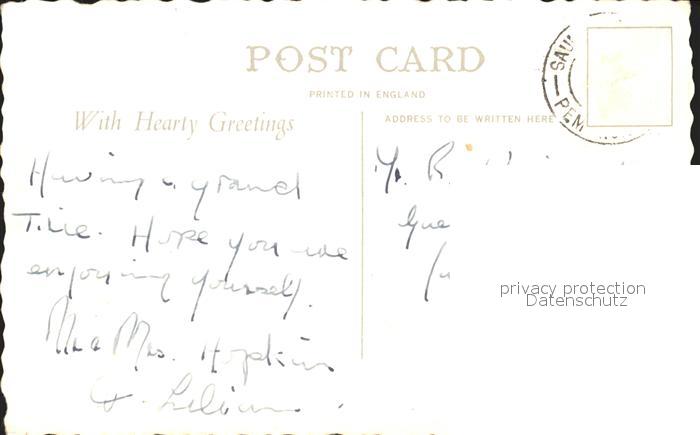 POST CARD
PRINTED IN ENGLAND
With Hearty Greetings
ADDRESS TO BE WRITTEN HERE
SAU
PEM
Having a grand
Time. Hope you are
enjoying yourself.
Mr & Mrs. Hopkins
& Lilian.
privacy protection
Datenschutz